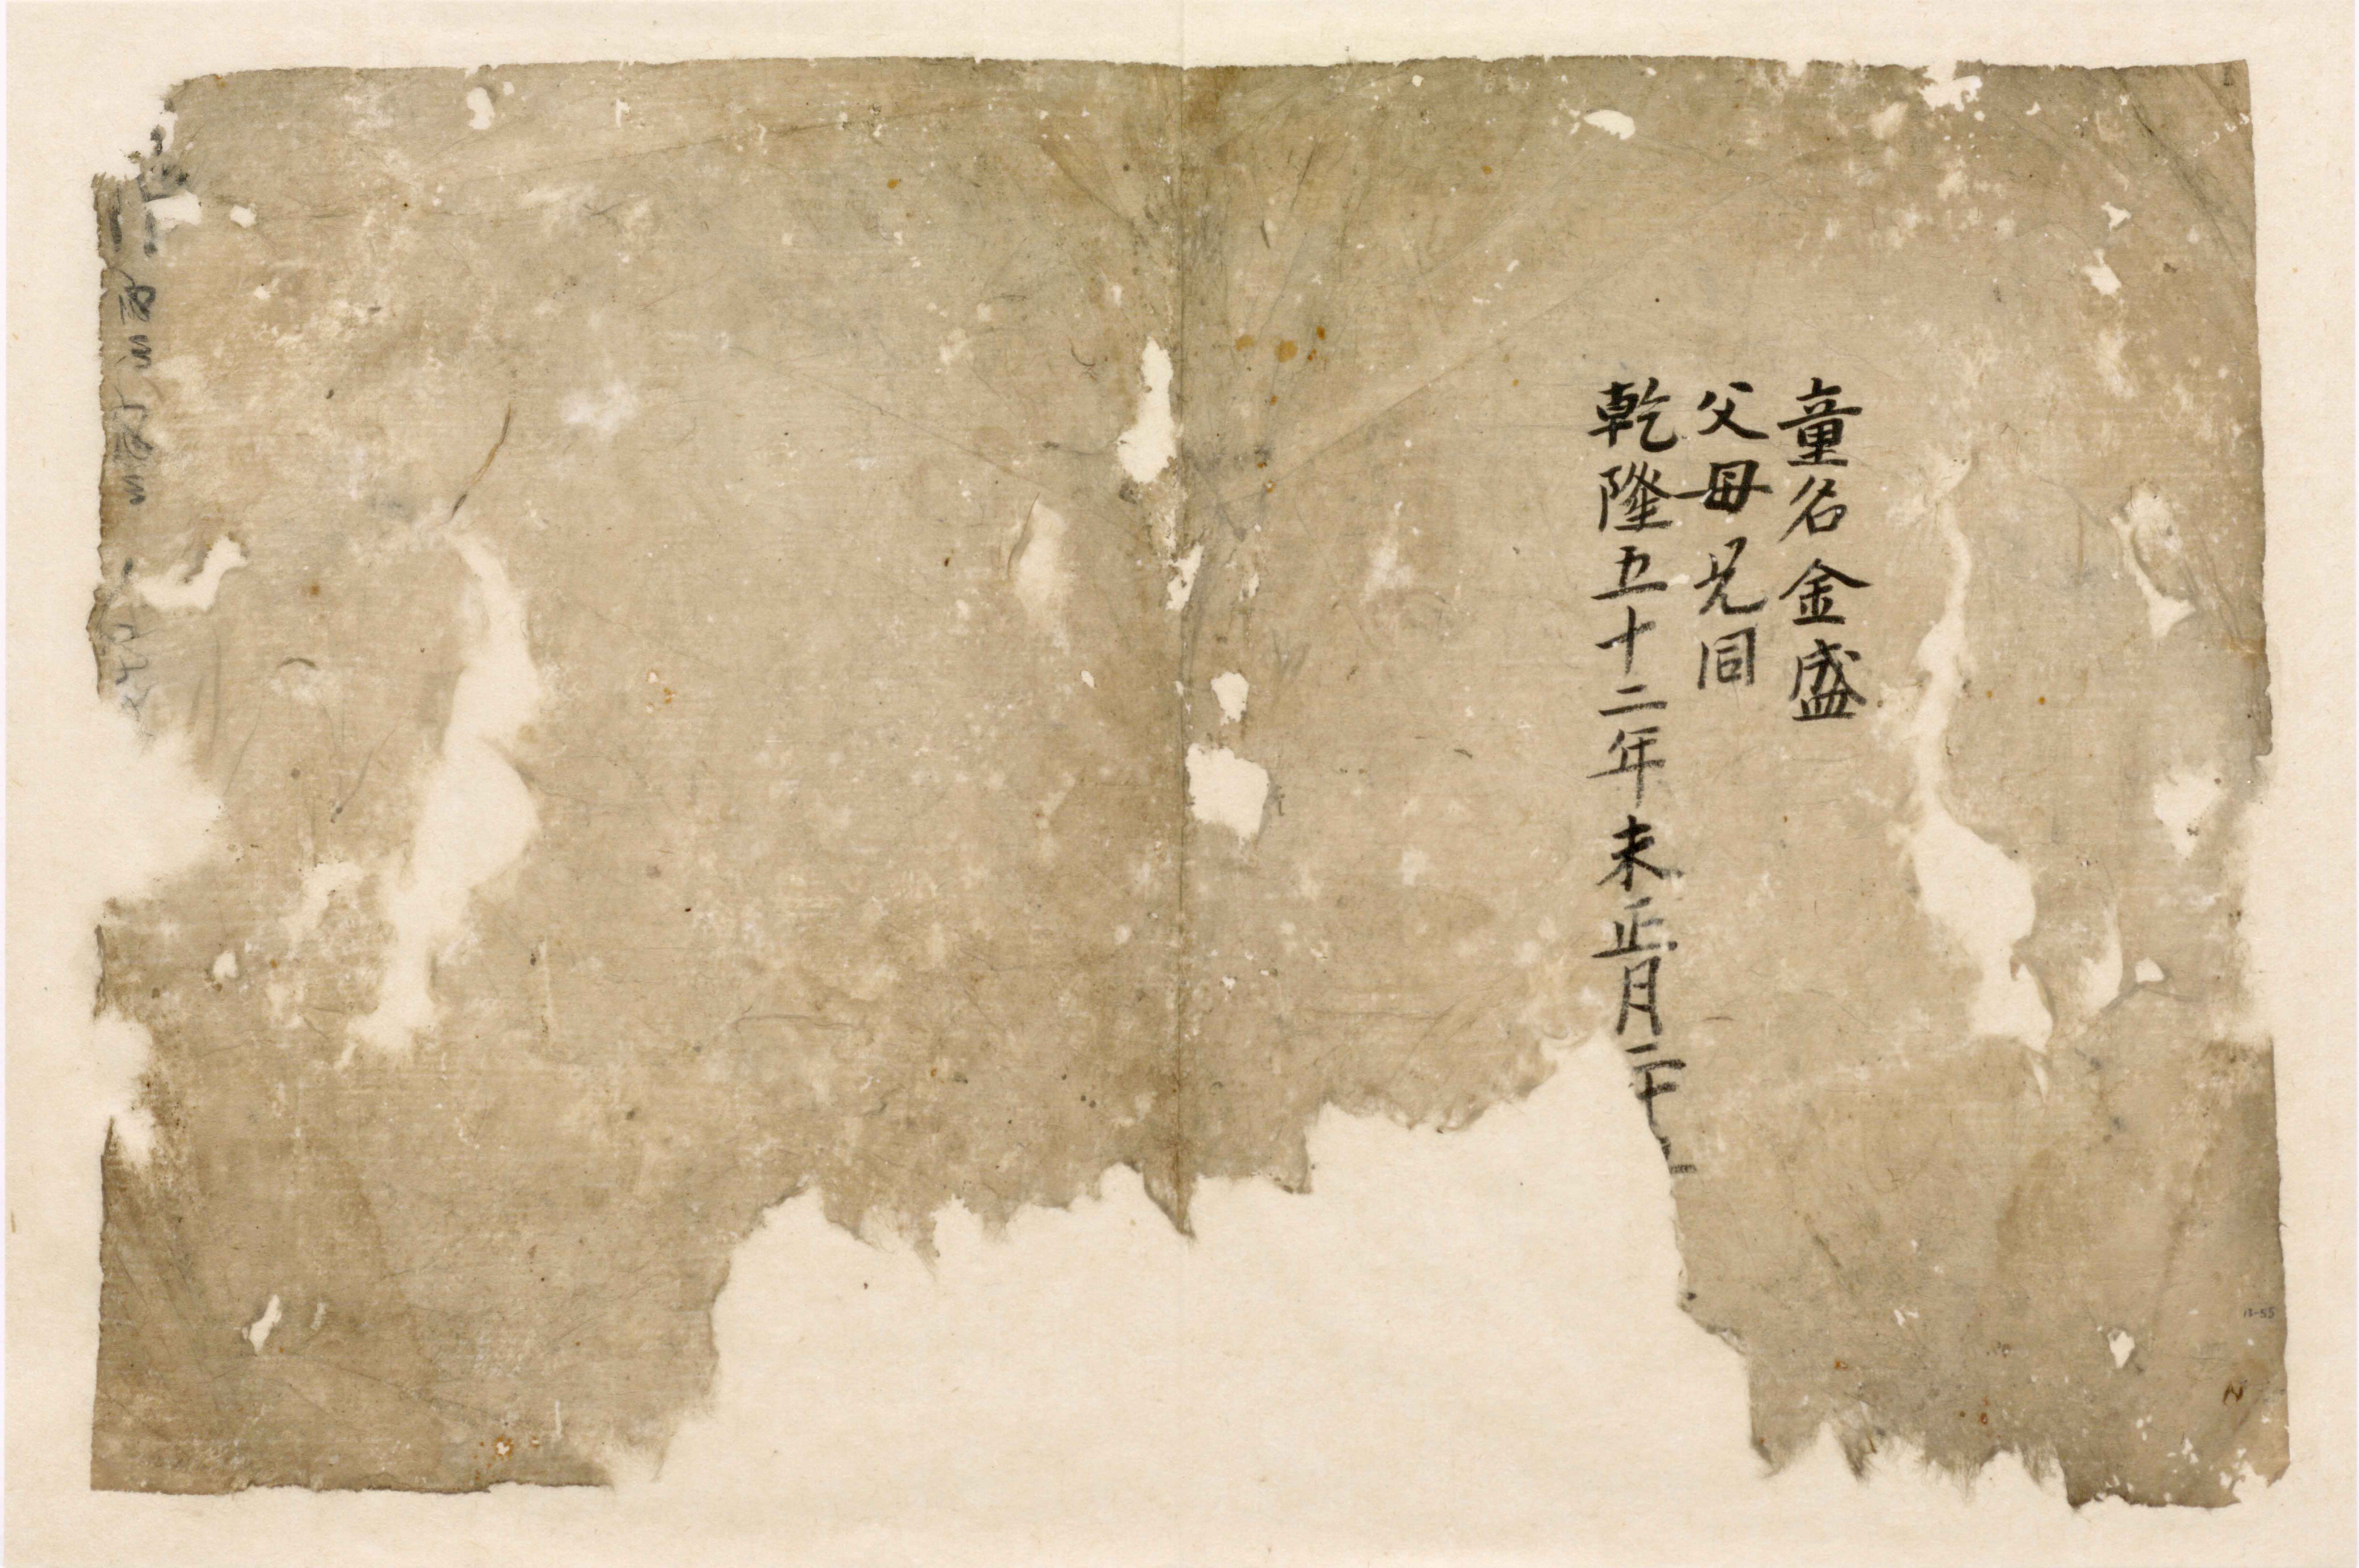 童名金盛
父母兄同
乾隆五十二年未正月二十
13-55